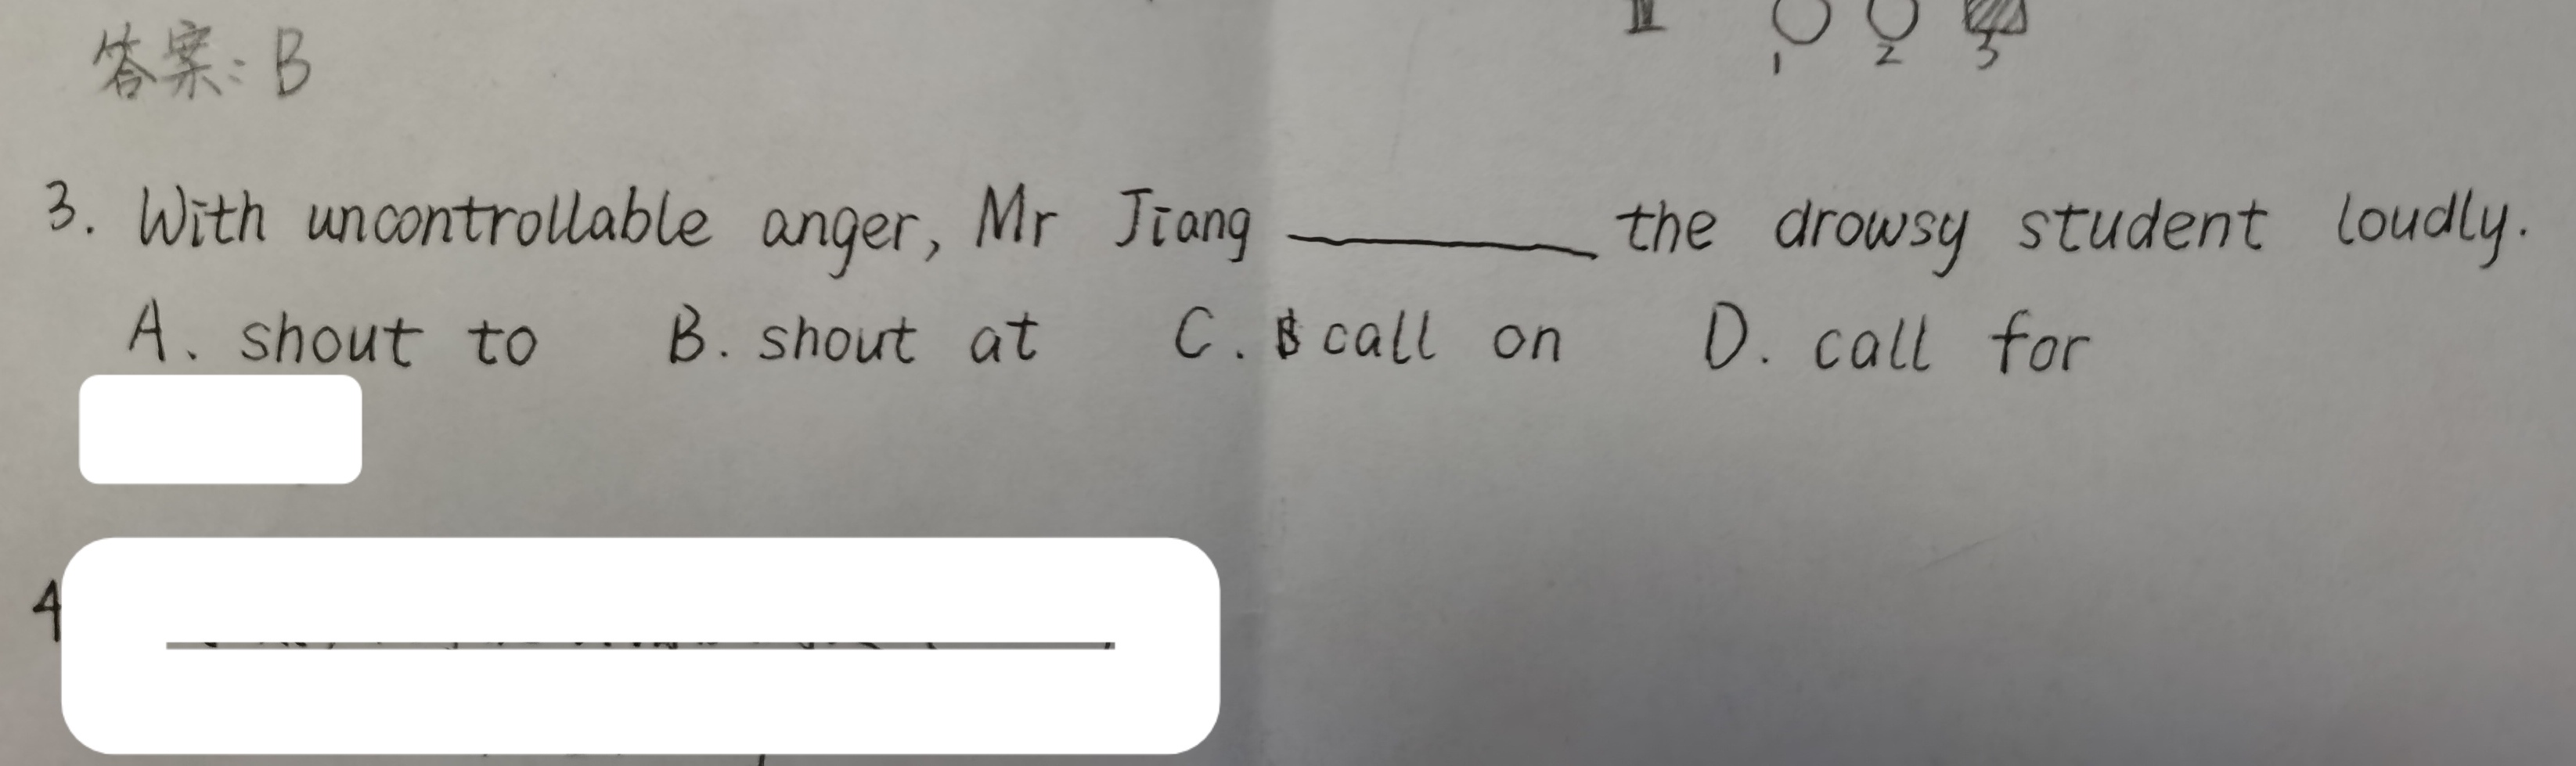 II
1 2 3
答案: B
3. With uncontrollable anger, Mr Jiang ________ the drowsy student loudly.
A. shout to B. shout at C. call on D. call for
4